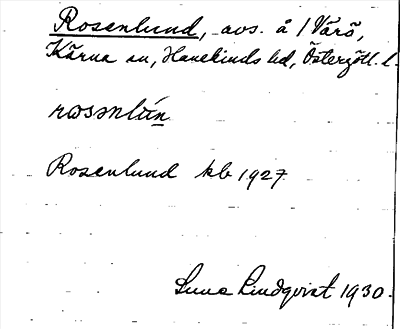 Rosenlund, avs. å 1 Värö,
Kärna sn, Hanekinds hd, Östergötl. l.
rosənlún
Rosenlund kb 1927
Suna Lindqvist 1930.